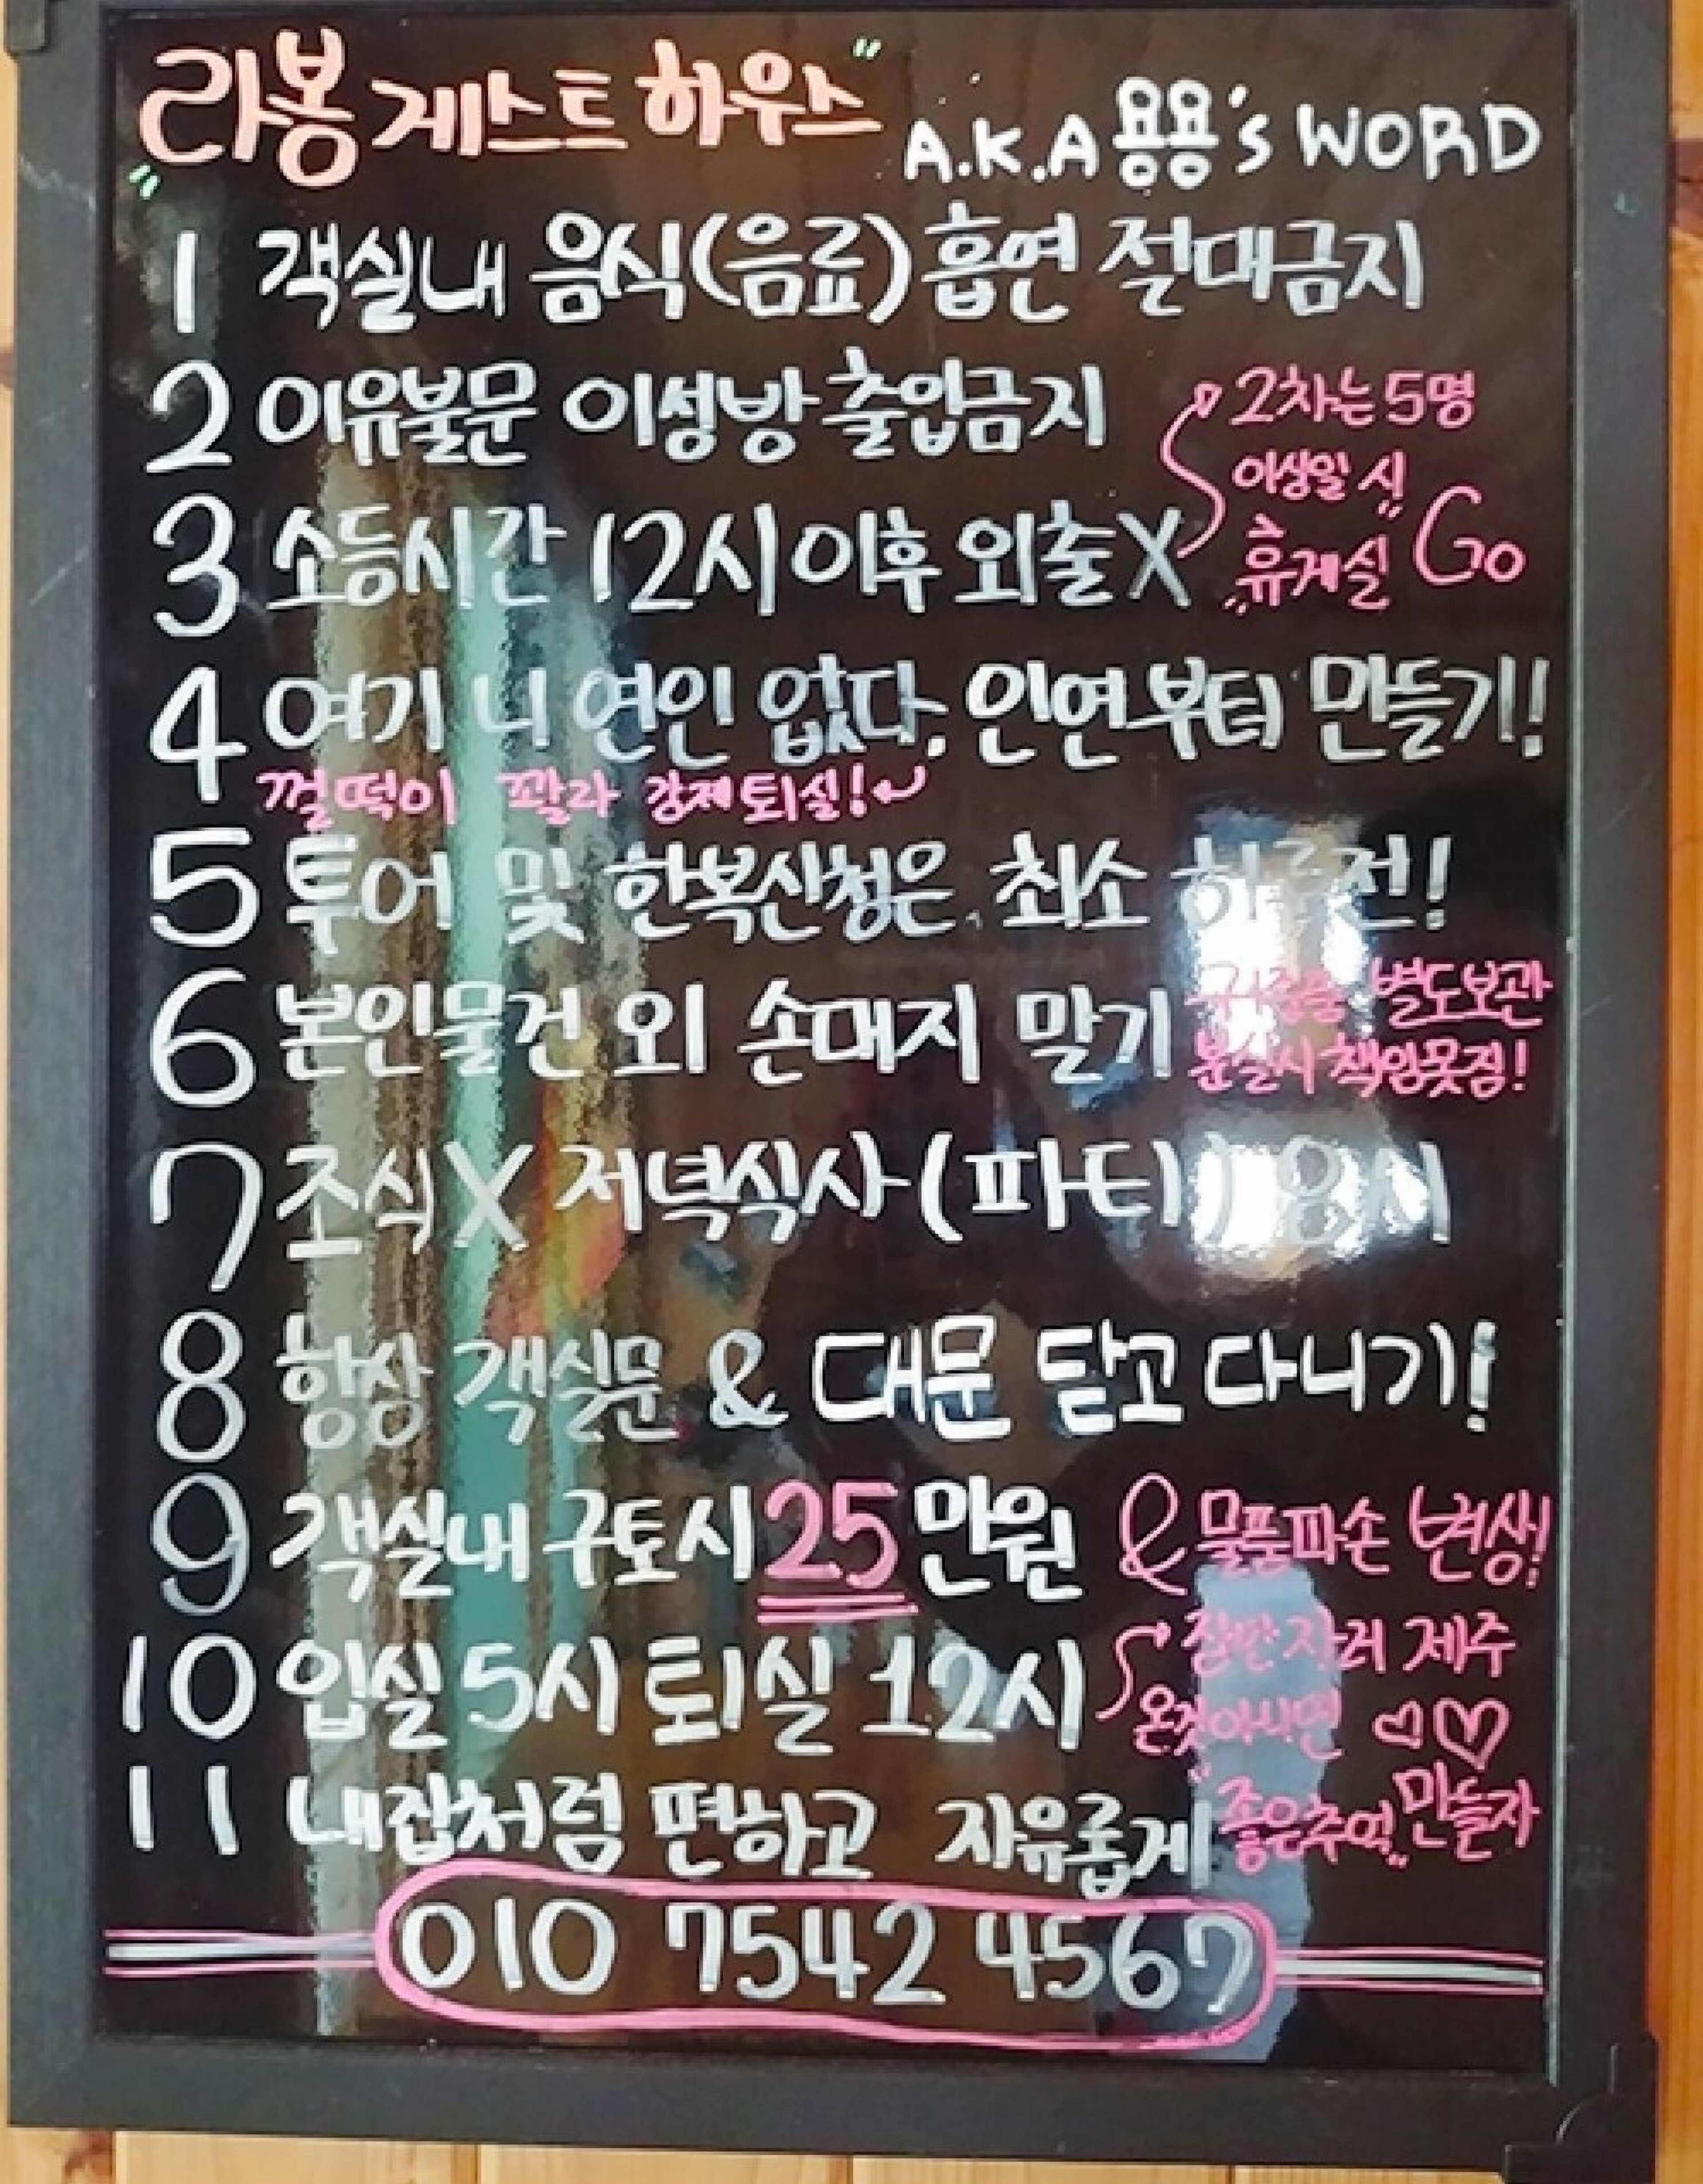 "라봉 게스트하우스" A.K.A 용용's WORD
1 객실내 음식(음료) 흡연 절대금지
2 이유불문 이성방 출입금지
3 소등시간 12시 이후 외출X
2차는 5명
이상일 시
"휴게실" Go
4 여기 니 연인 없다, 인연부터 만들기!
껄떡이 꽐라 강제퇴실!
5 투어 및 한복신청은 최소 하루전!
6 본인물건 외 손대지 말기
귀중품 별도보관
분실시 책임못짐!
7 조식X 저녁식사 (파티) 8시
8 항상 객실문 & 대문 닫고 다니기!
9 객실내 구토시 25만원 & 물품파손 변상!
10 입실 5시 퇴실 12시
잠만자러 제주
온것아니면 ♡♡
11 내집처럼 편하고 자유롭게 "좋은추억" 만들자
010 7542 4567